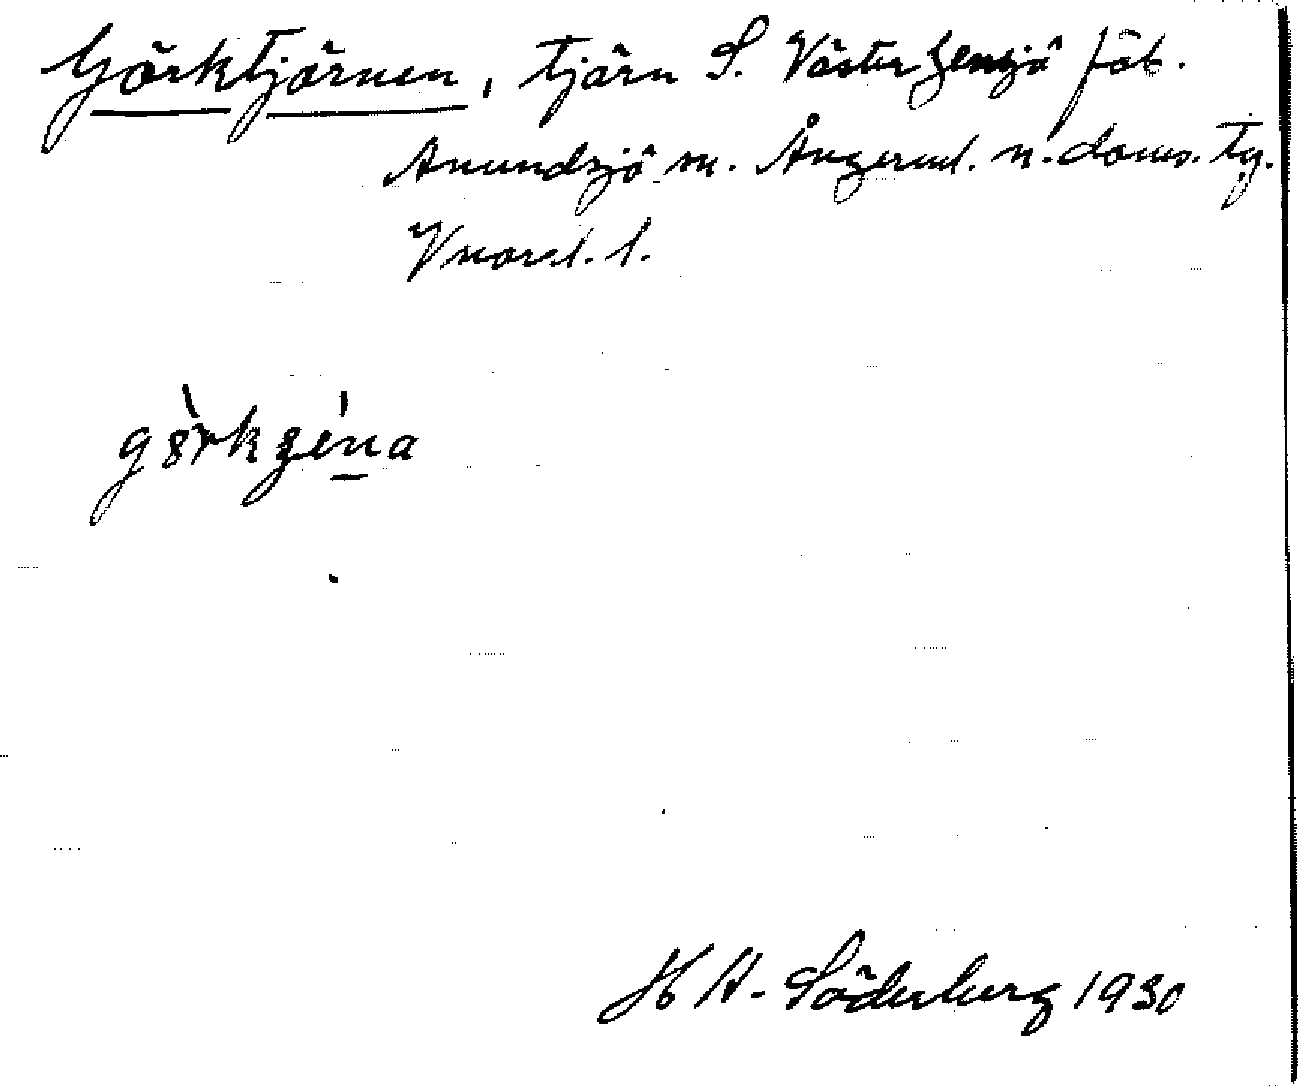 Görktjärnen, tjärn S. Västergensjö fäb.
Anundsjö sn. Ångerml. n. doms. tg.
Vnorrl. l.
H A. Söderberg 1930